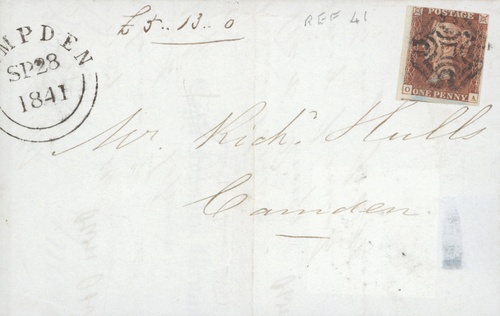 £5.. 13.. 0
REF 41
MPDEN
SP 28
1841
POSTAGE
O ONE PENNY A
Mr. Richd. Hulls
Camden.